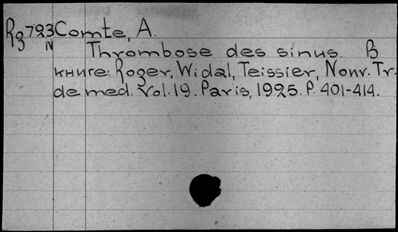 Rg793 Comte, A.
N
Thrombose des sinus. В
книге: Roger, Widal, Teissier, Nouv. Tr.
de med. Vol. 19. Paris, 1925. P. 401-414.